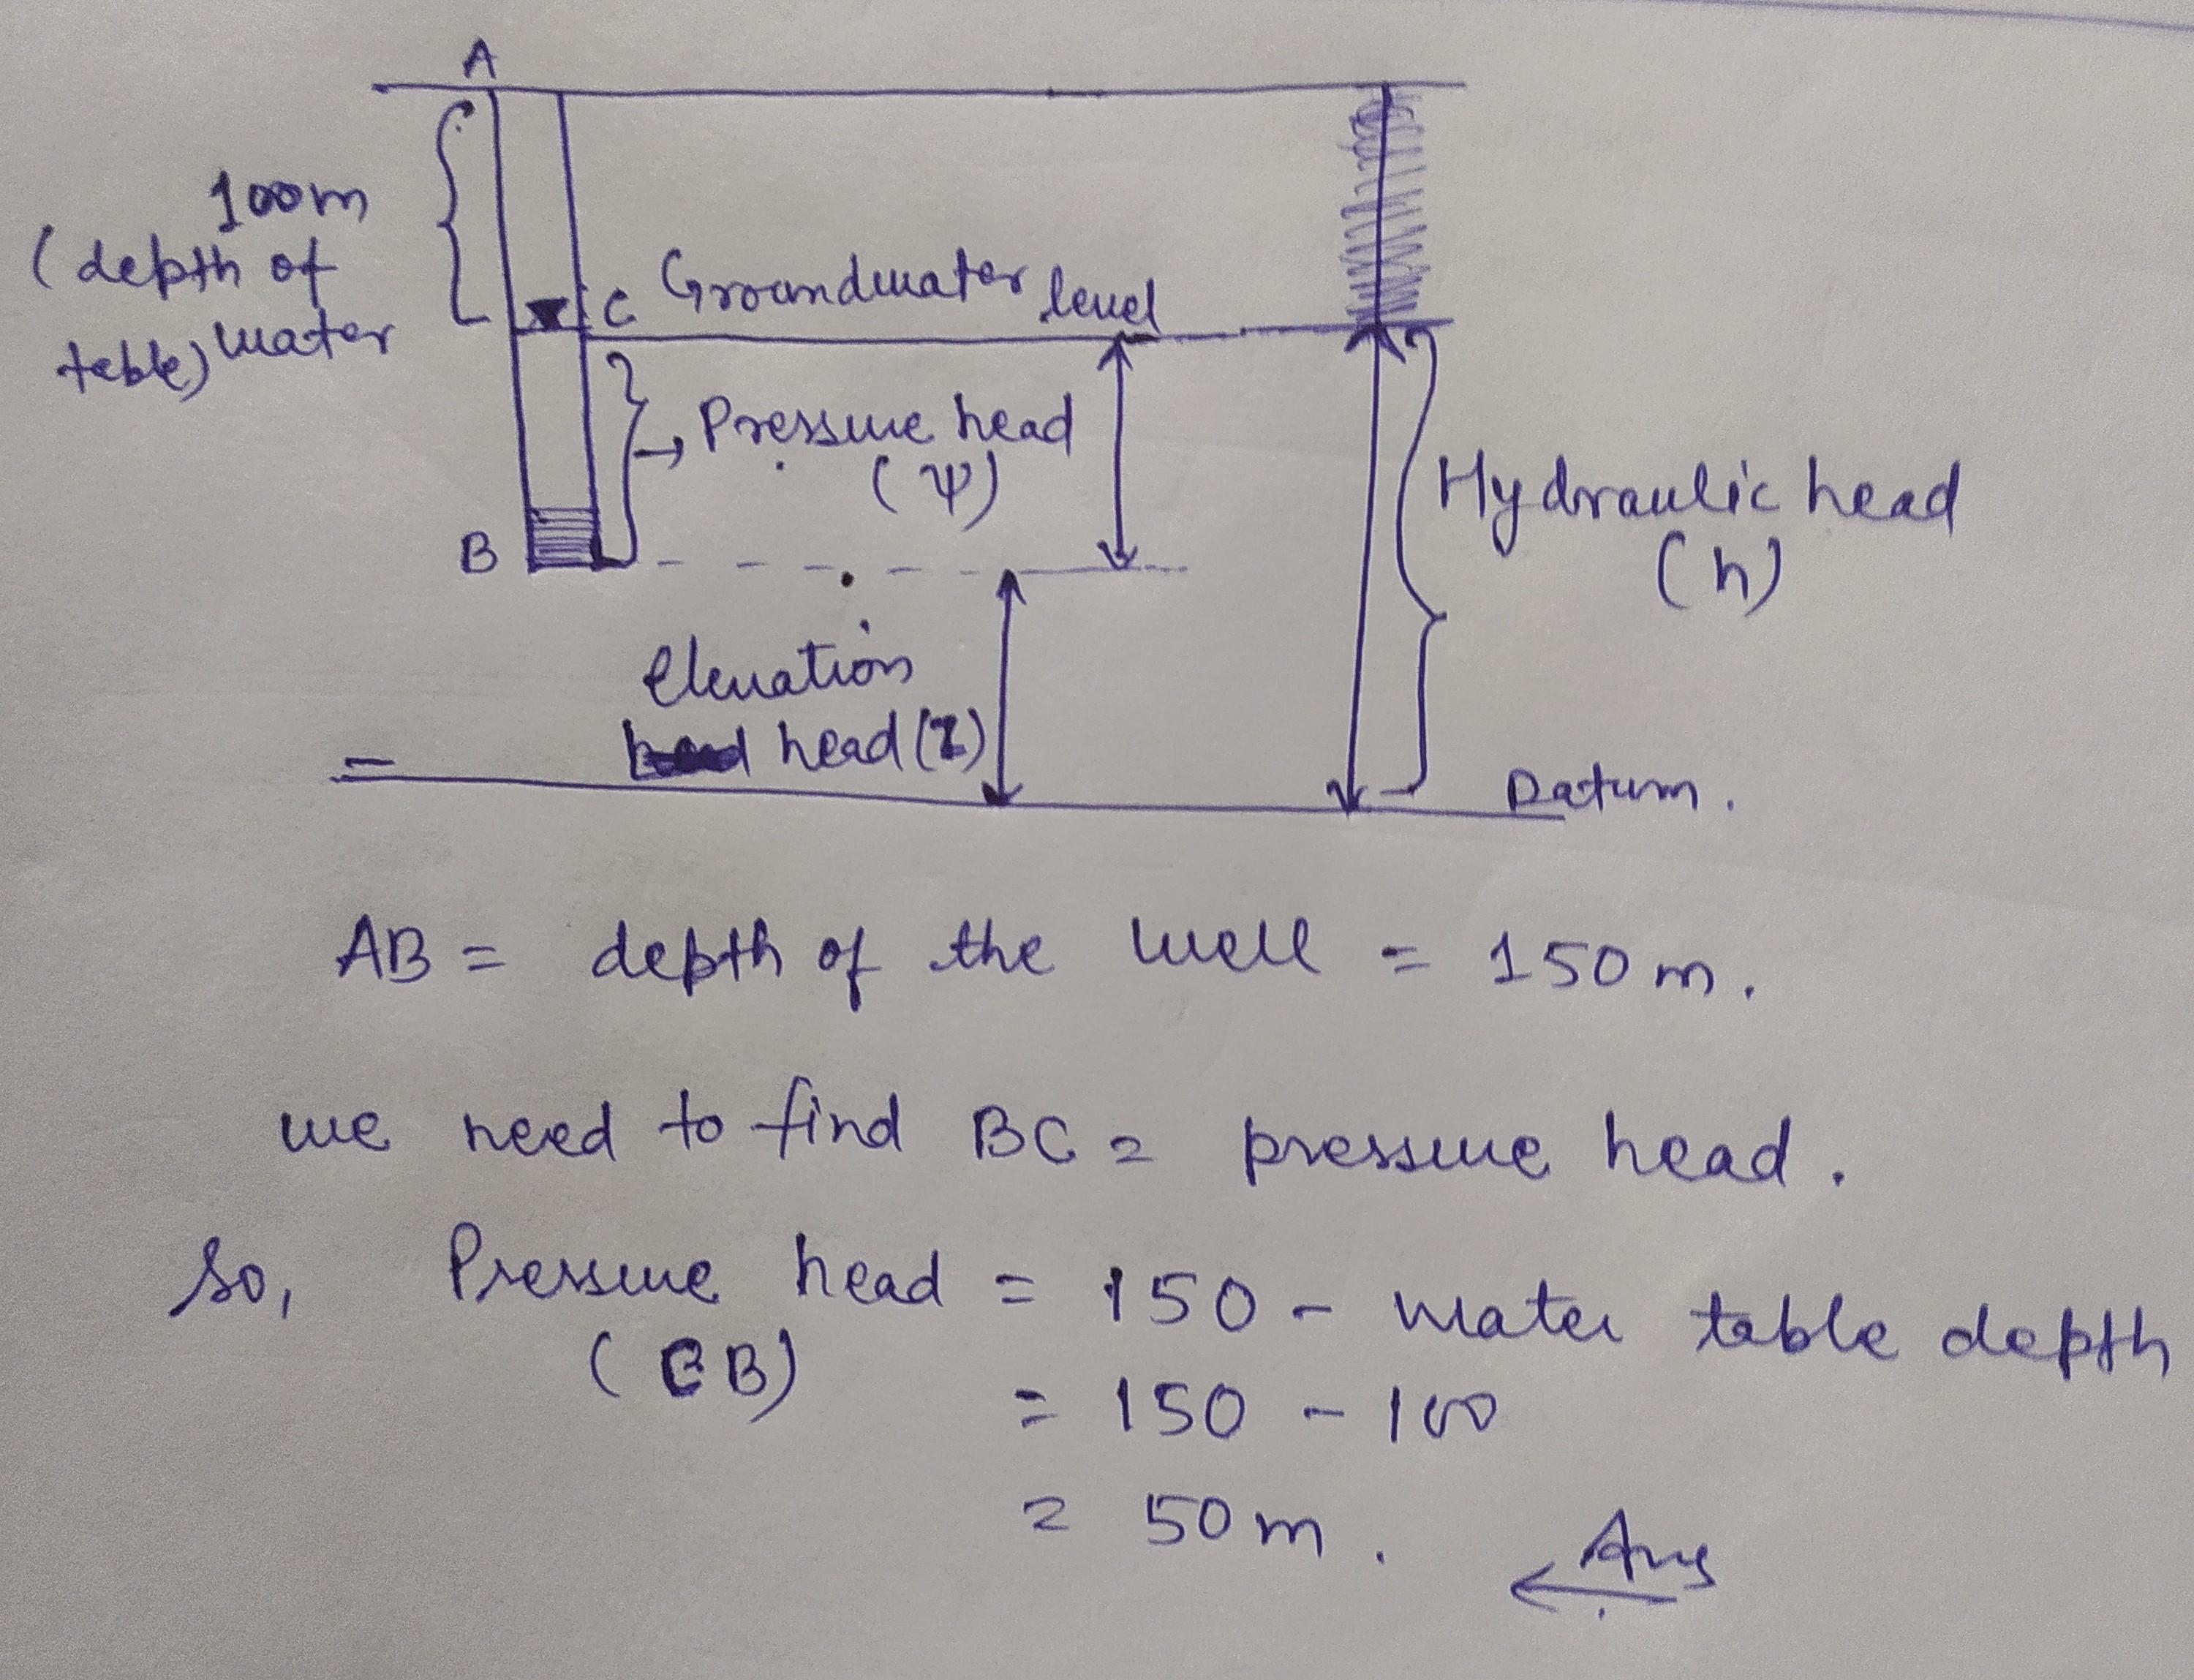 A
100m
(depth of
water
table)
C Groundwater level
Pressure head
(Ψ)
B
Hydraulic head
(h)
elevation
head (z)
Datum.
AB = depth of the well = 150 m.
we need to find BC = pressure head.
So, Pressure head = 150 - water table depth
(CB)
= 150 - 100
= 50 m.
Ans